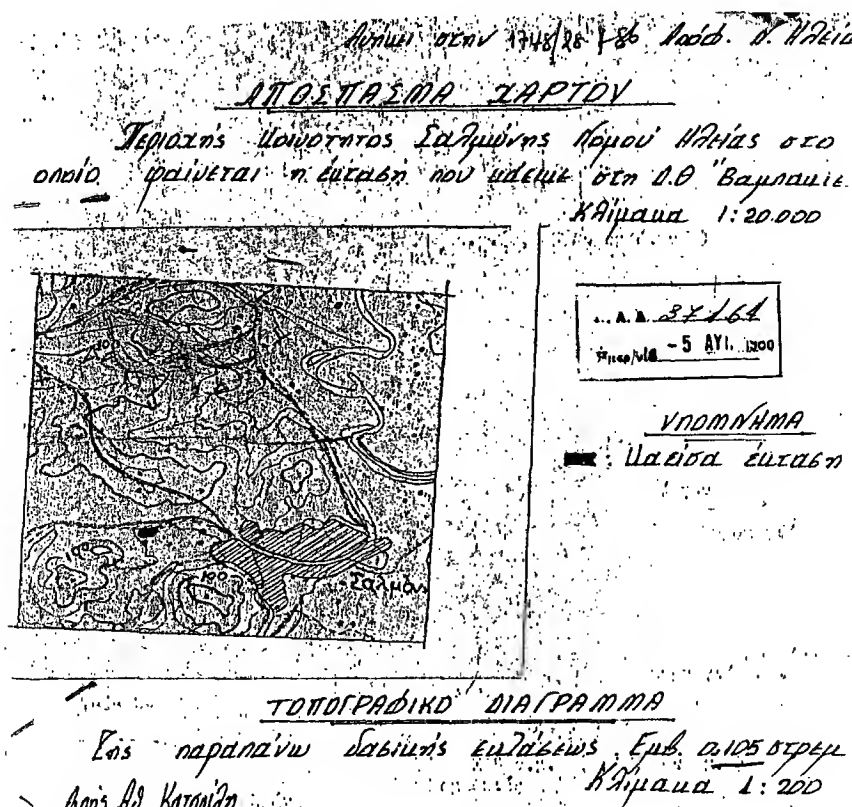 Ανήκει στην 1748/28 -86 Αποφ. Ν. Ηλεία
ΑΠΟΣΠΑΣΜΑ ΧΑΡΤΟΥ
Περιοχής Κοινότητος Σαλμώνης Νομού Ηλείας στο
οποίο φαίνεται η έκταση που κάειμε στη Δ.Θ "Βαμπακιε
Κλίμακα 1:20.000
Α. Δ. 37164
-5 ΑΥΓ.
ΥΠΟΜΝΗΜΑ
: Καείσα έκταση
100
100
Σαλμών
ΤΟΠΟΓΡΑΦΙΚΟ ΔΙΑΓΡΑΜΜΑ
Της παραπάνω δασικής εκτάσεως Εμβ. 0,105 στρεμ
Κλίμακα 1:200